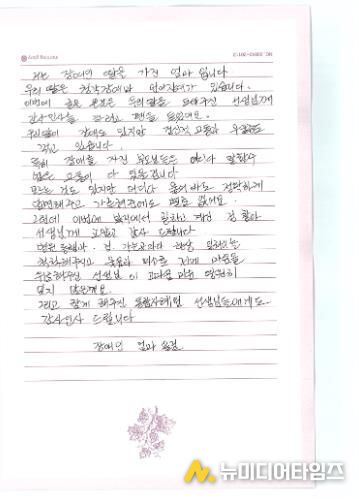 저는 장애인 딸을 가진 엄마 입니다
우리 딸은 청각장애와 언어장애가 있습니다.
이번에 글을 쓴것은 우리 딸을 도와주신 선생님께
감사인사를 드리고 펜을 들었어요.
우리딸이 장애도 있지만 정신적 고통과 우울증도
겪고 있습니다.
특히 장애를 가진 부모님들은 어디다 말할수
없는 고통이 다 있을겁니다
모르는 것도 있지만 어디다 물어봐도 정확하게
설명해주고 가르쳐주는데도 별로 없어요.
그런데 이번에
선생님께 고맙고 감사 드립니다
친절하게해주시고 웃음과 미소로 저의 마음을
선생님 이 고마움 마음 영원히
잊지 않을께요.
그리고 함께 해주신 통합사례 선생님들에게도
감사인사 드립니다
장애인 엄마 올림
뉴미디어타임즈